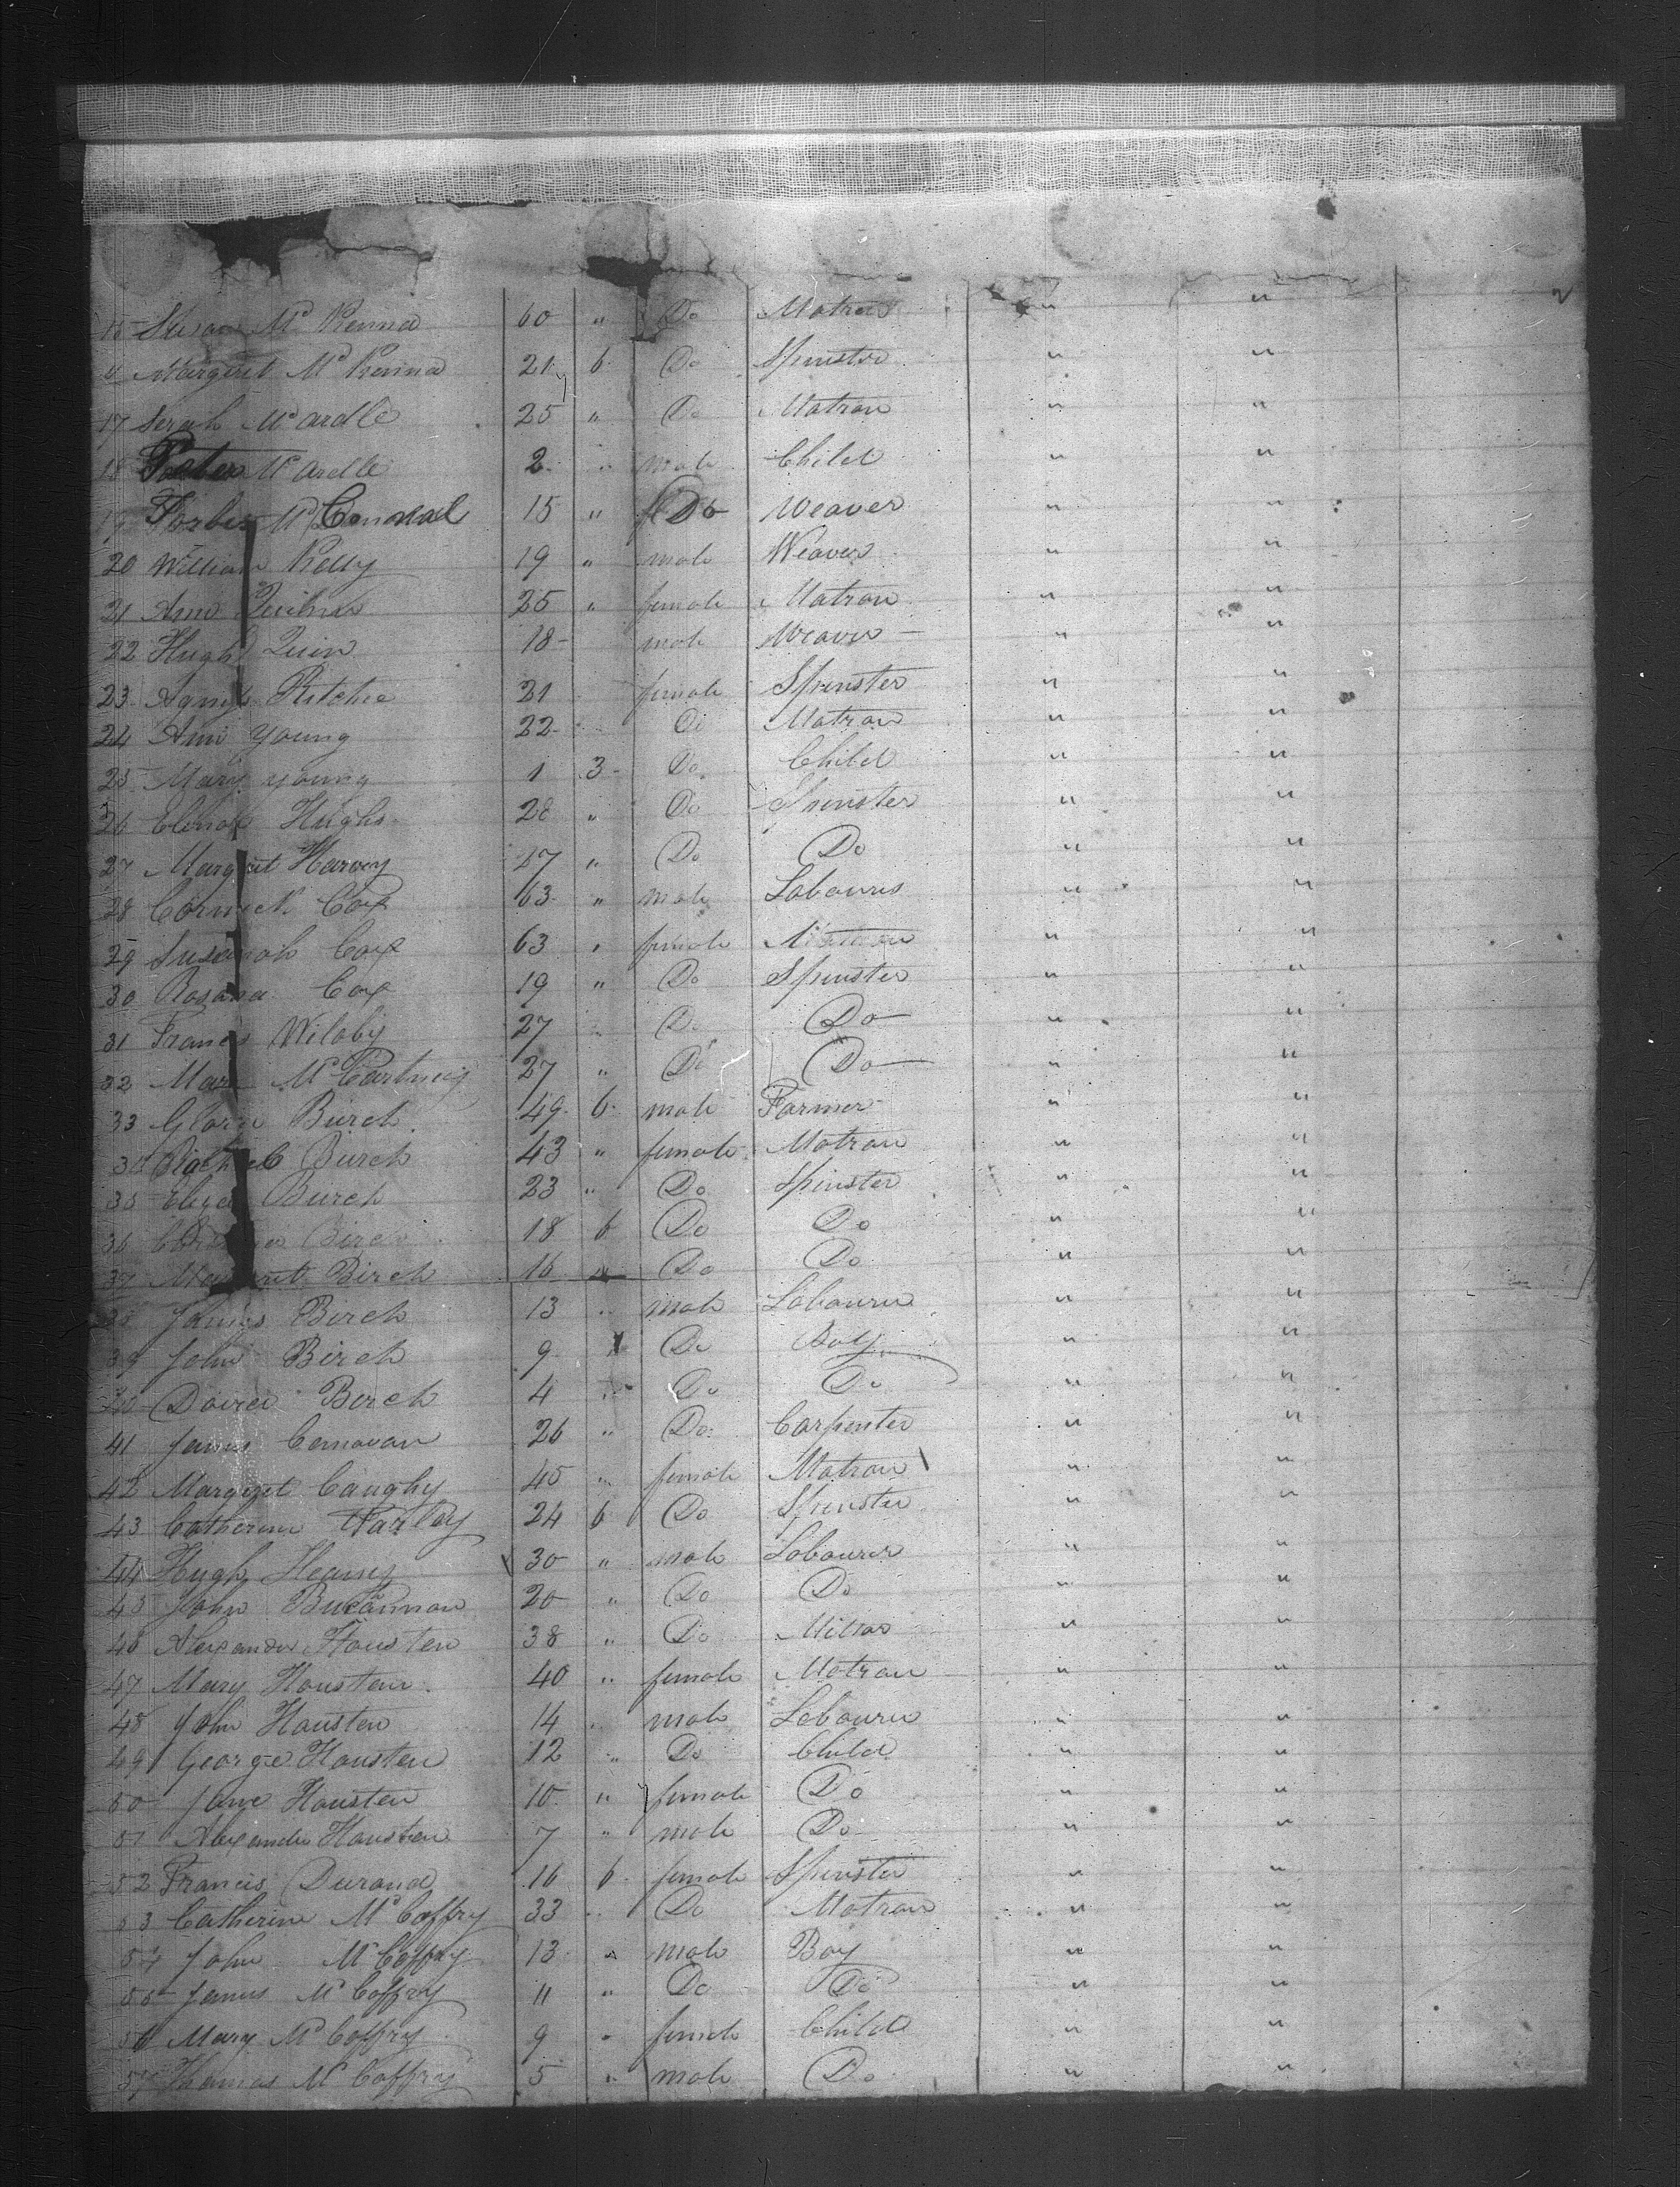 15 Susan McKenna 60 " Do Matron " "
Margret McKenna 21 6 Do Spinster " "
17 Serah McArdle 25 " Do Matron " "
18 McArdle 2 " male Child " "
19 McConoval 15 " Do Weaver " "
20 William Kelly 19 " male Weaver " "
21 Ann 25 " female Matron " "
22 Hugh Quin 18 male Weaver " "
23 Agnes Ritchie 21 female Spinster " "
24 Ann Young 22 Do Matron " "
25 Mary Young 1 3 Do Child " "
26 Elinor Hughs 28 " Do Spinster " "
27 Margret Harvey 27 " Do Do " "
28 Cormick Cox 63 " male Labourer " "
29 Susanah Cox 63 " female Matron " "
30 Rosana Cox 19 " Do Spinster " "
31 Francis Wilaby 27 " Do Do " "
32 Mary McCartney 27 " Do Do " "
33 Burch 49 6 male Farmer " "
34 Burch 43 " female Matron " "
35 Burch 23 " Do Spinster " "
36 Birch 18 6 Do Do " "
37 Margret Birch 16 " Do Do " "
38 James Birch 13 " male Labourer " "
39 John Birch 9 " Do Boy " "
40 Birch 4 " Do Do " "
41 James Conovan 26 " Do Carpenter " "
42 Margret Caughy 45 " female Matron " "
43 Catherine Farley 24 6 Do Spinster " "
44 Hugh Heany 30 " male Labourer " "
45 John Buchannan 20 " Do Do " "
46 Alexander Housten 38 " Do " "
47 Mary Housten 40 " female Matron " "
48 John Housten 14 " male Labourer " "
49 George Housten 12 " Do Child " "
50 Jane Housten 10 " female Do " "
51 Alexander Housten 7 " male Do " "
52 Francis Durand 16 6 female Spinster " "
53 Catherine McCaffry 33 " Do Matron " "
54 John McCaffry 13 " male Boy " "
55 James McCaffry 11 " Do Do " "
56 Mary McCaffry 9 " female Child " "
57 Thomas McCaffry 5 " male Do " "